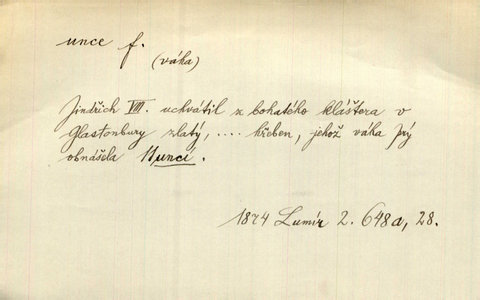 unce f.
(váha)
Jindřich VIII. uchvátil z bohatého kláštera v
Glastonbury zlatý, .... hřeben, jehož váha prý
obnášela 11 uncí.
1874 Lumír 2. 648a, 28.